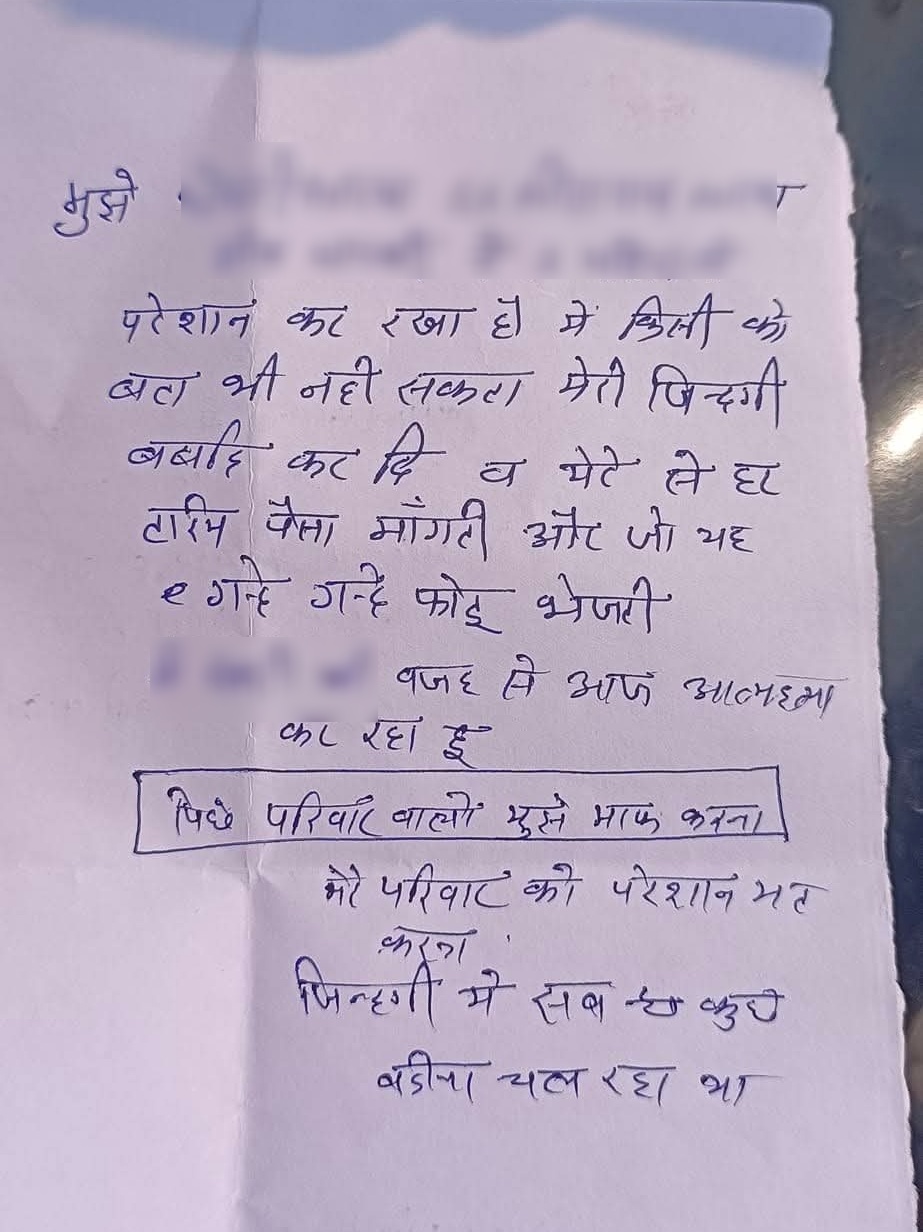 मुझे
परेशान कर रखा है में किसी को
बता भी नही सकता मेरी जिन्दगी
बर्बाद कर दि व मेरे से हर
टाईम पैसा माँगती और जो यह
गन्दे गन्दे फोटू भेजती
वजह से आज आत्महत्या
कर रहा हूँ
पिछे परिवार वालो मुझे माफ करना
मेरे परिवार को परेशान मत
करना
जिन्दगी मे सब कुछ
बढीया चल रहा था